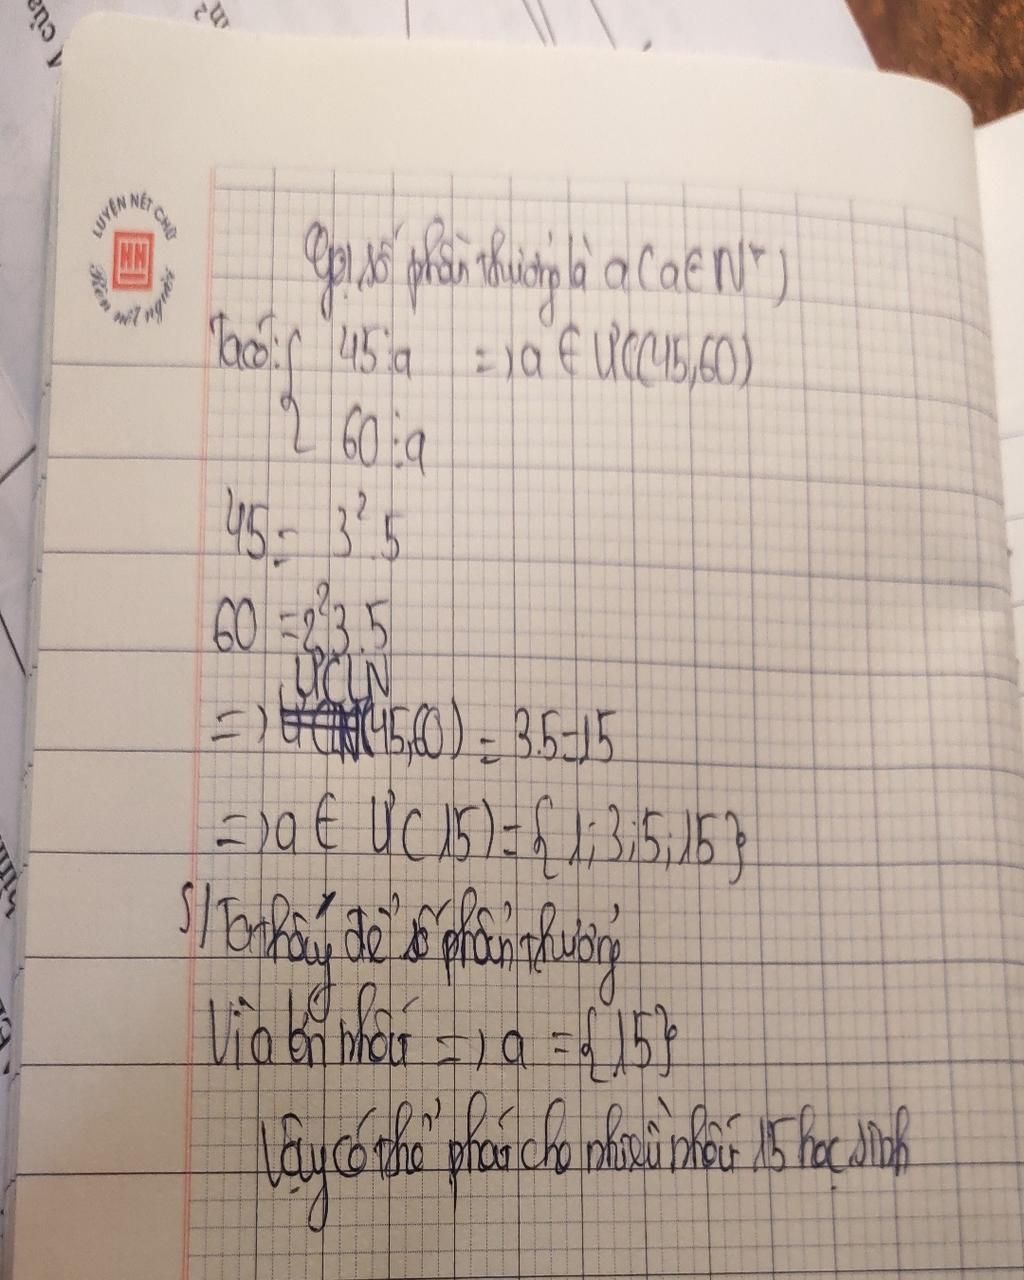 của
m²
LUYỆN NÉT CHỮ
HN
Rèn nết người
Gọi số phần thưởng là a (a ∈ N*)
Ta có: { 45 ⋮ a => a ∈ ƯC(45,60)
60 ⋮ a
45 = 3².5
60 = 2².3.5
ƯCLN
=> (45,60) = 3.5=15
=> a ∈ Ư(15) = {1;3;5;15}
Ta thấy để số phần thưởng
Vì a lớn nhất => a = {15}
Vậy có thể phát cho nhiều nhất 15 học sinh